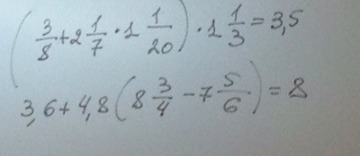 (3/8 + 2 1/7 · 1 1/20) · 1 1/3 = 3,5
3,6 + 4,8 (8 3/4 - 7 5/6) = 8